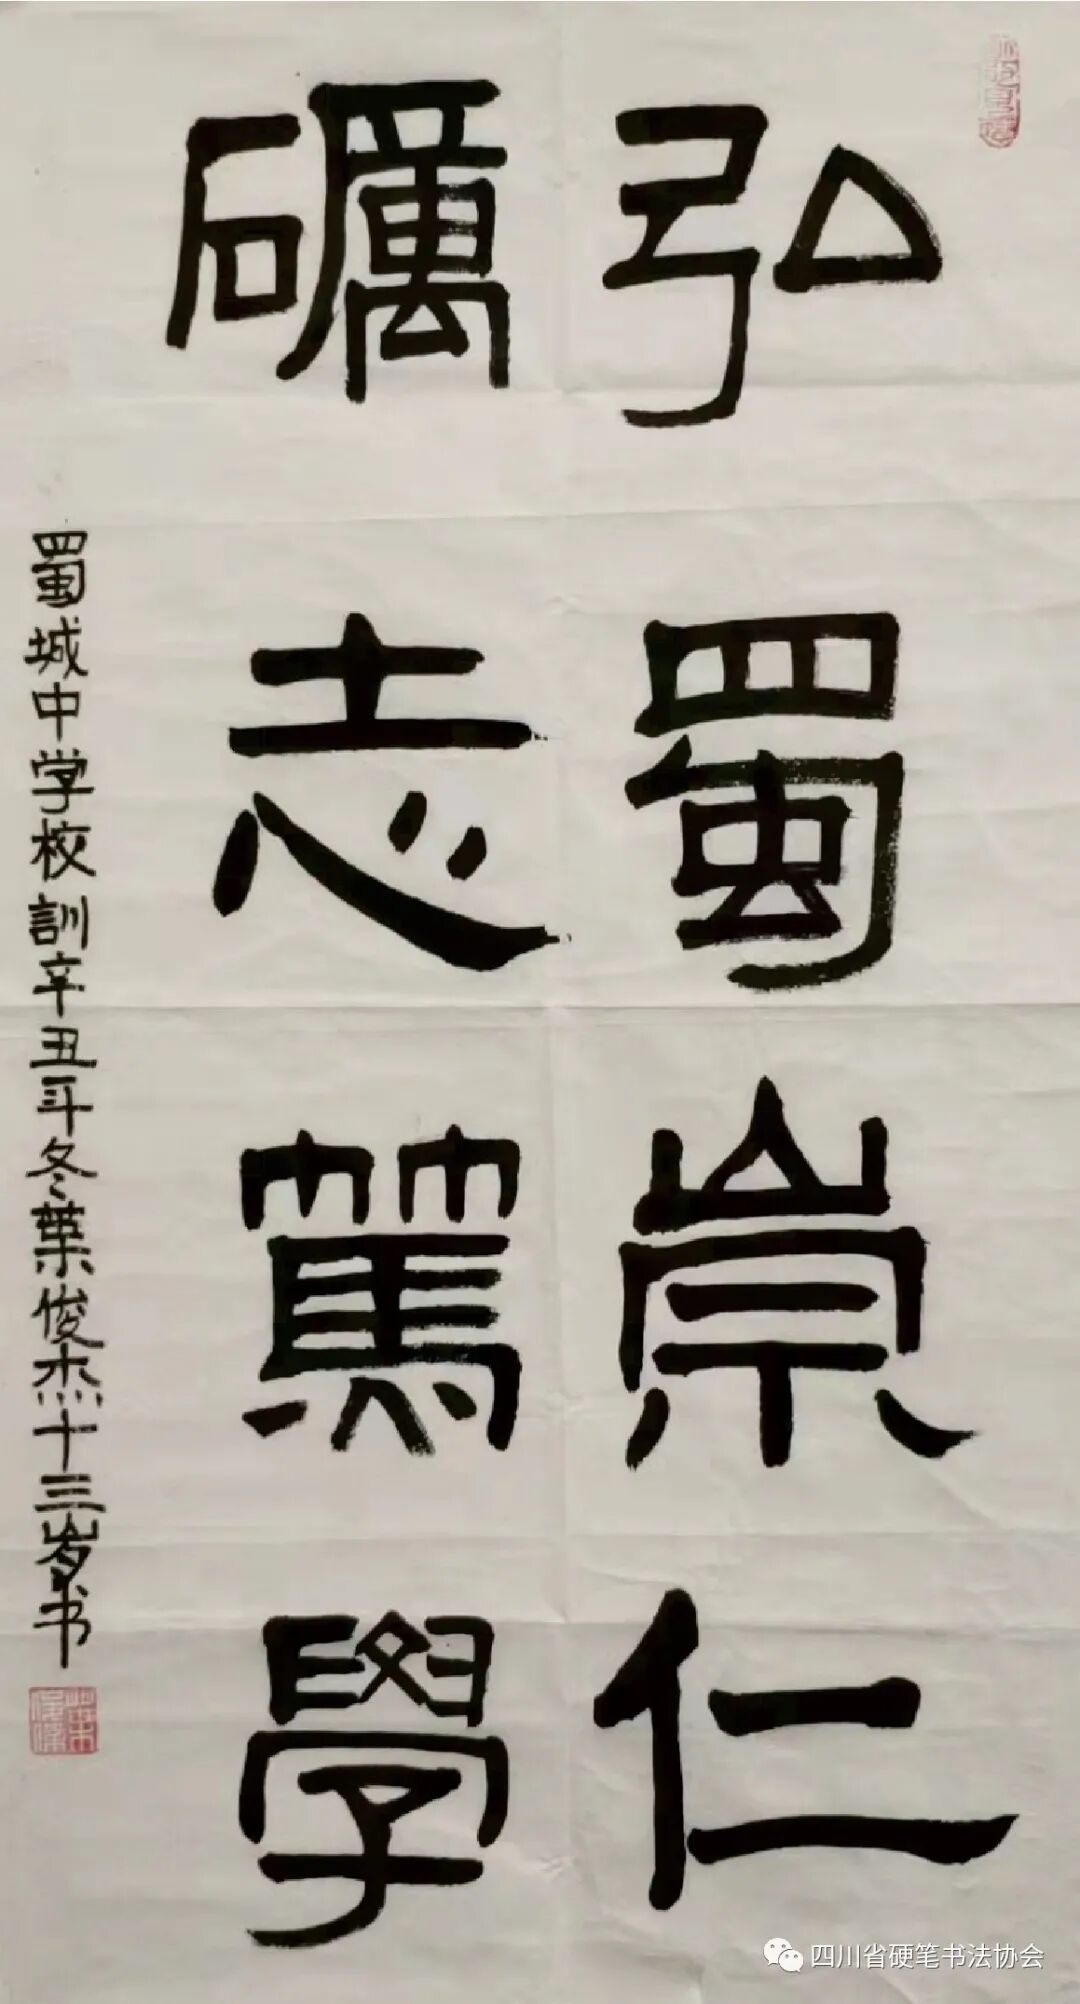 弘蜀崇仁
礪志篤學
蜀城中学校訓辛丑年冬葉俊杰十三岁书
四川省硬笔书法协会